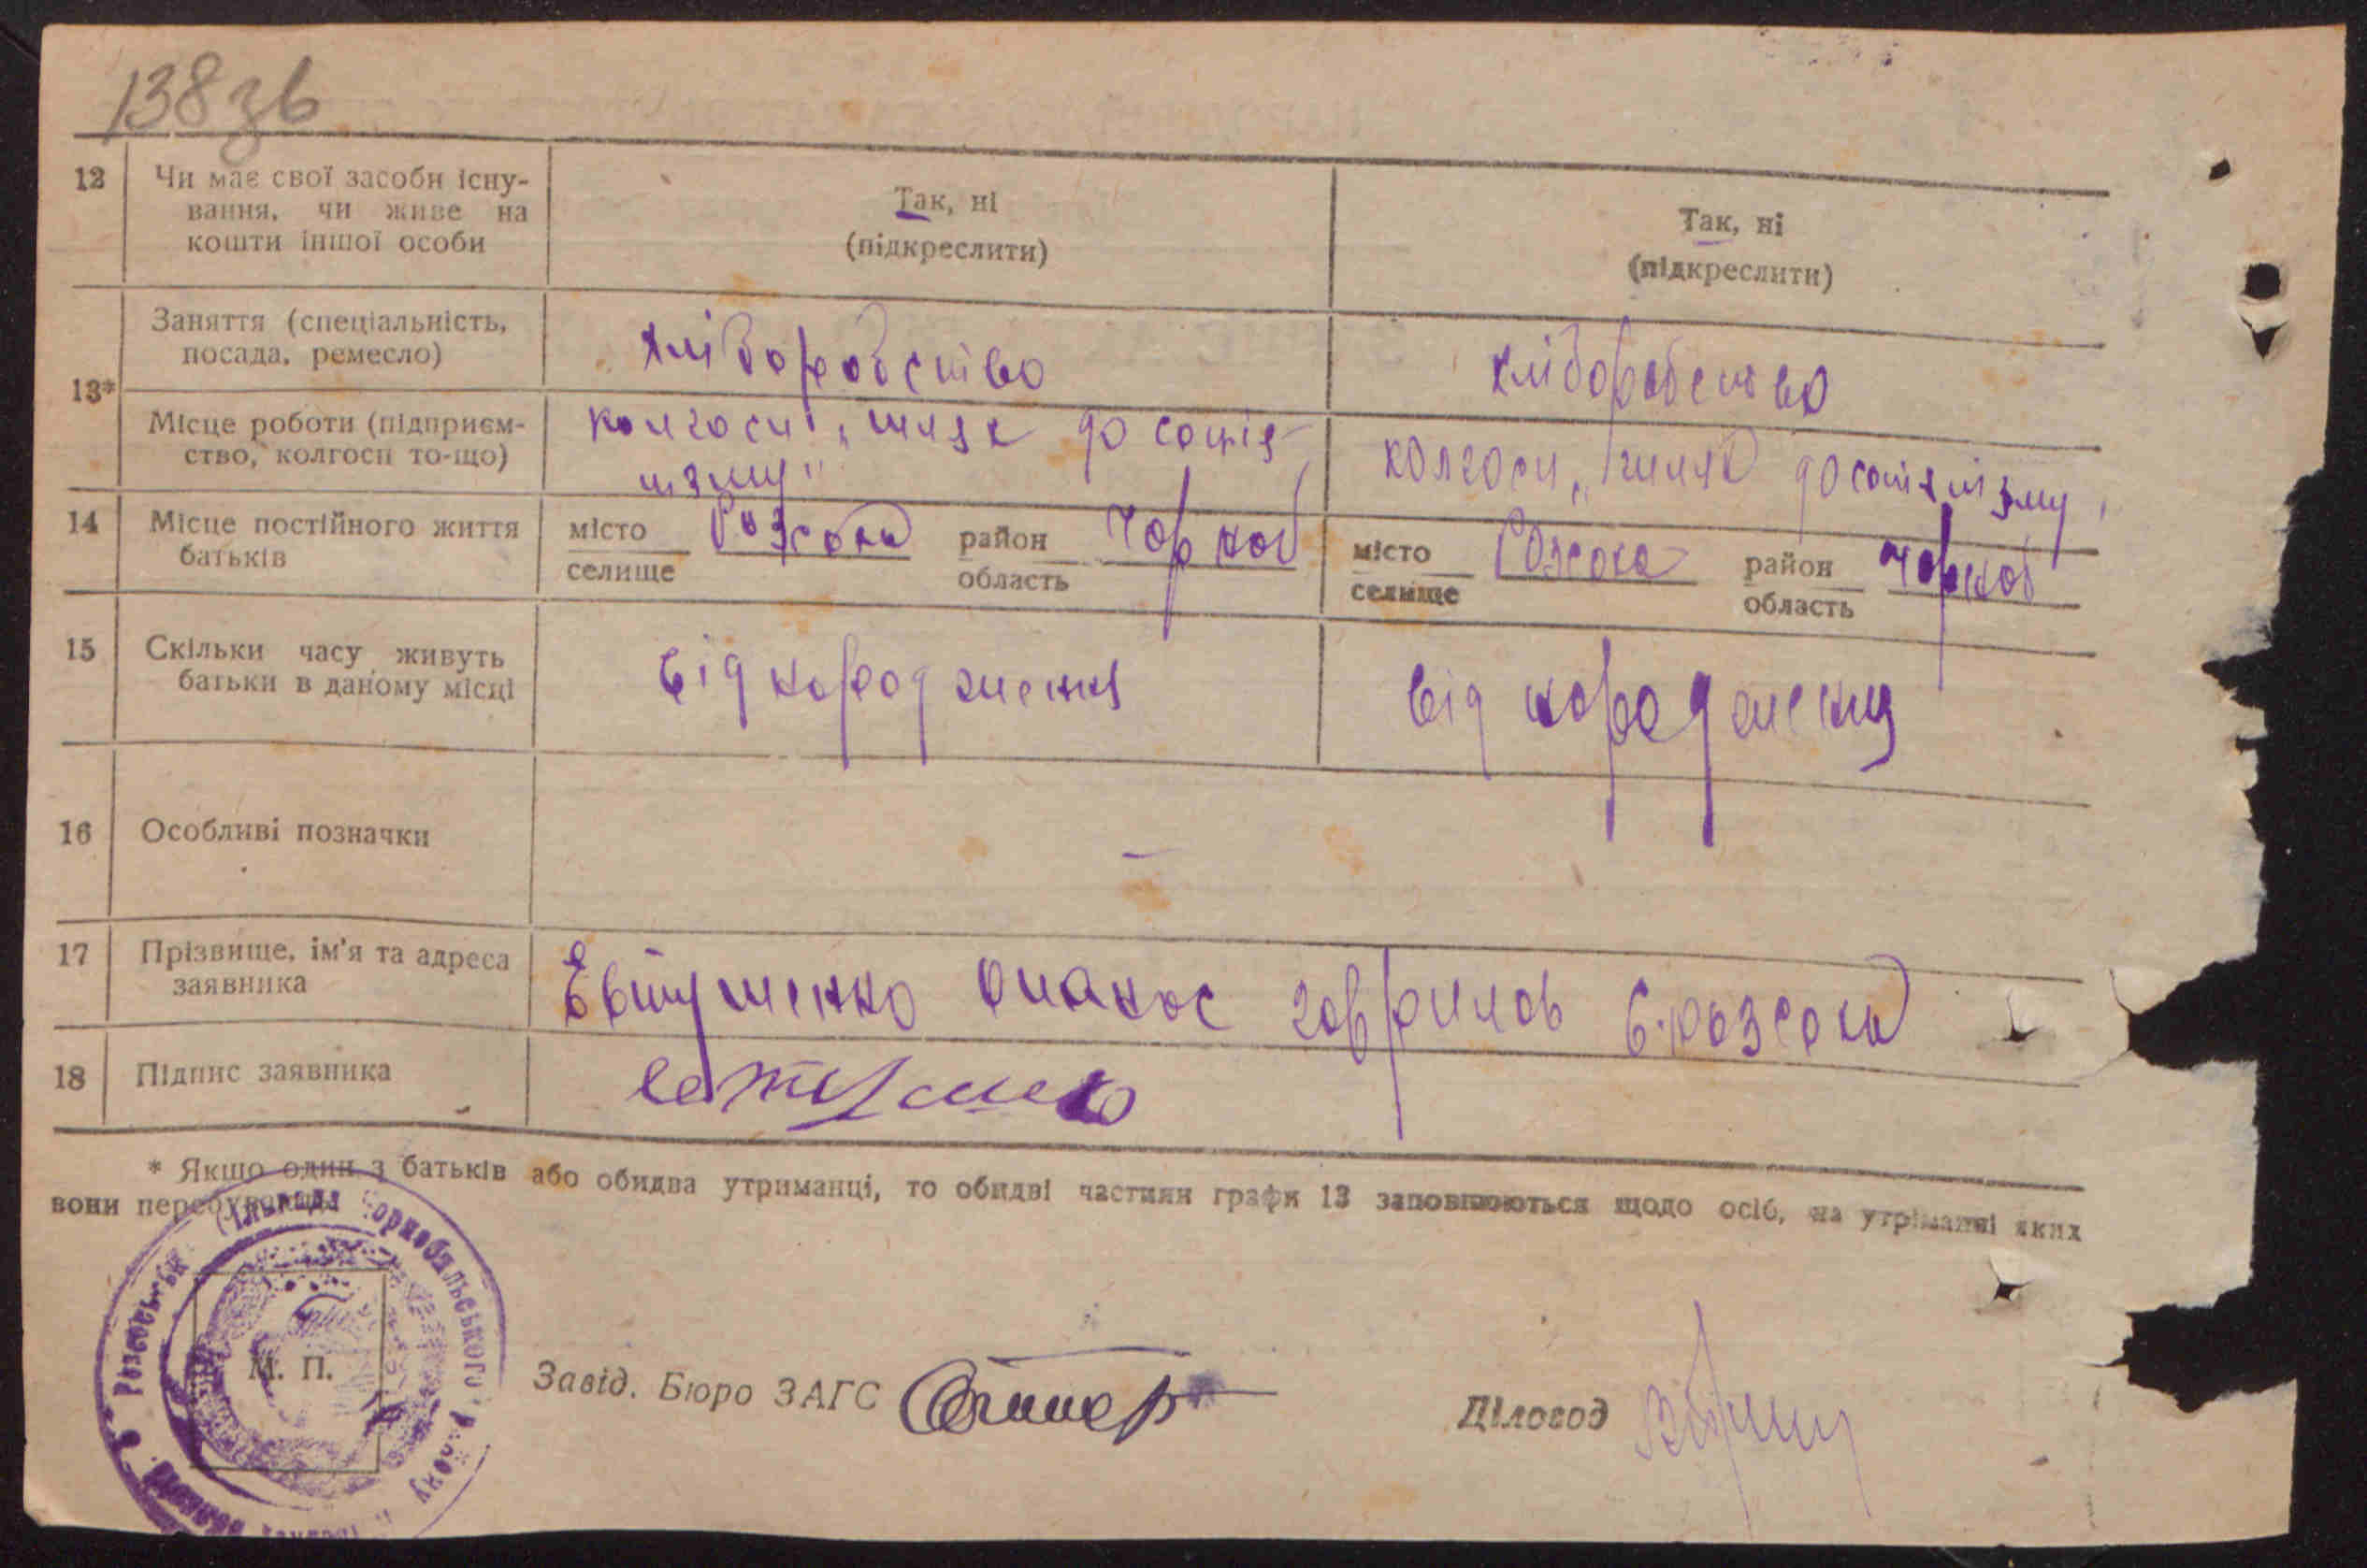 138зв
12 Чи має свої засоби існу-
вання, чи живе на
кошти іншої особи
Так, ні
(підкреслити)
Так, ні
(підкреслити)
13*
Заняття (спеціальність,
посада, ремесло)
хліборобство
хліборобство
Місце роботи (підприєм-
ство, колгосп то-що)
колгосп „шлях до соція-
лізму"
колгосп „шлях до соціялізму
14 Місце постійного життя
батьків
місто
селище
Розсоха
район
область
Чорноб
місто
селище
Розсоха
район
область
Чорноб
15 Скільки часу живуть
батьки в даному місці
від народження
від народження
16 Особливі позначки
–
17 Прізвище, ім'я та адреса
заявника
Евтушенко Опанас Гаврилов с. Розсоха
18 Підпис заявника
* Якщо один з батьків або обидва утриманці, то обидві частини графи 13 заповнюються щодо осіб, на утріманні яких
вони перебувають
Чорнобильського району
М. П.
Завід. Бюро ЗАГС
Діловод